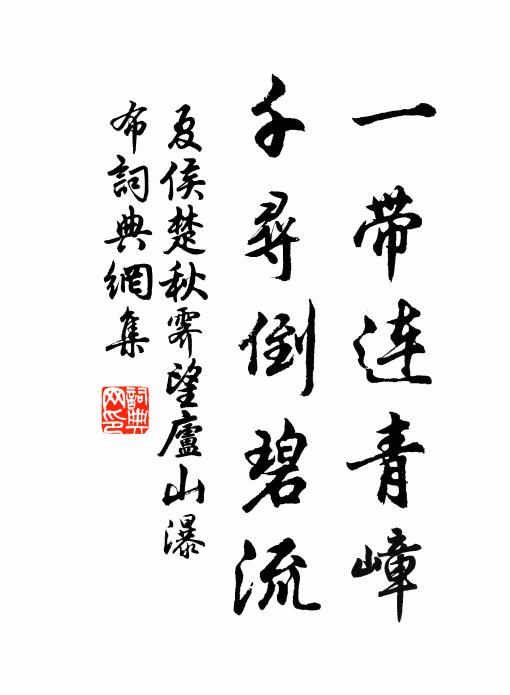 一带连青嶂
千尋倒碧流
夏侯楚秋霽望廬山瀑
布詞典網集
詞典網印